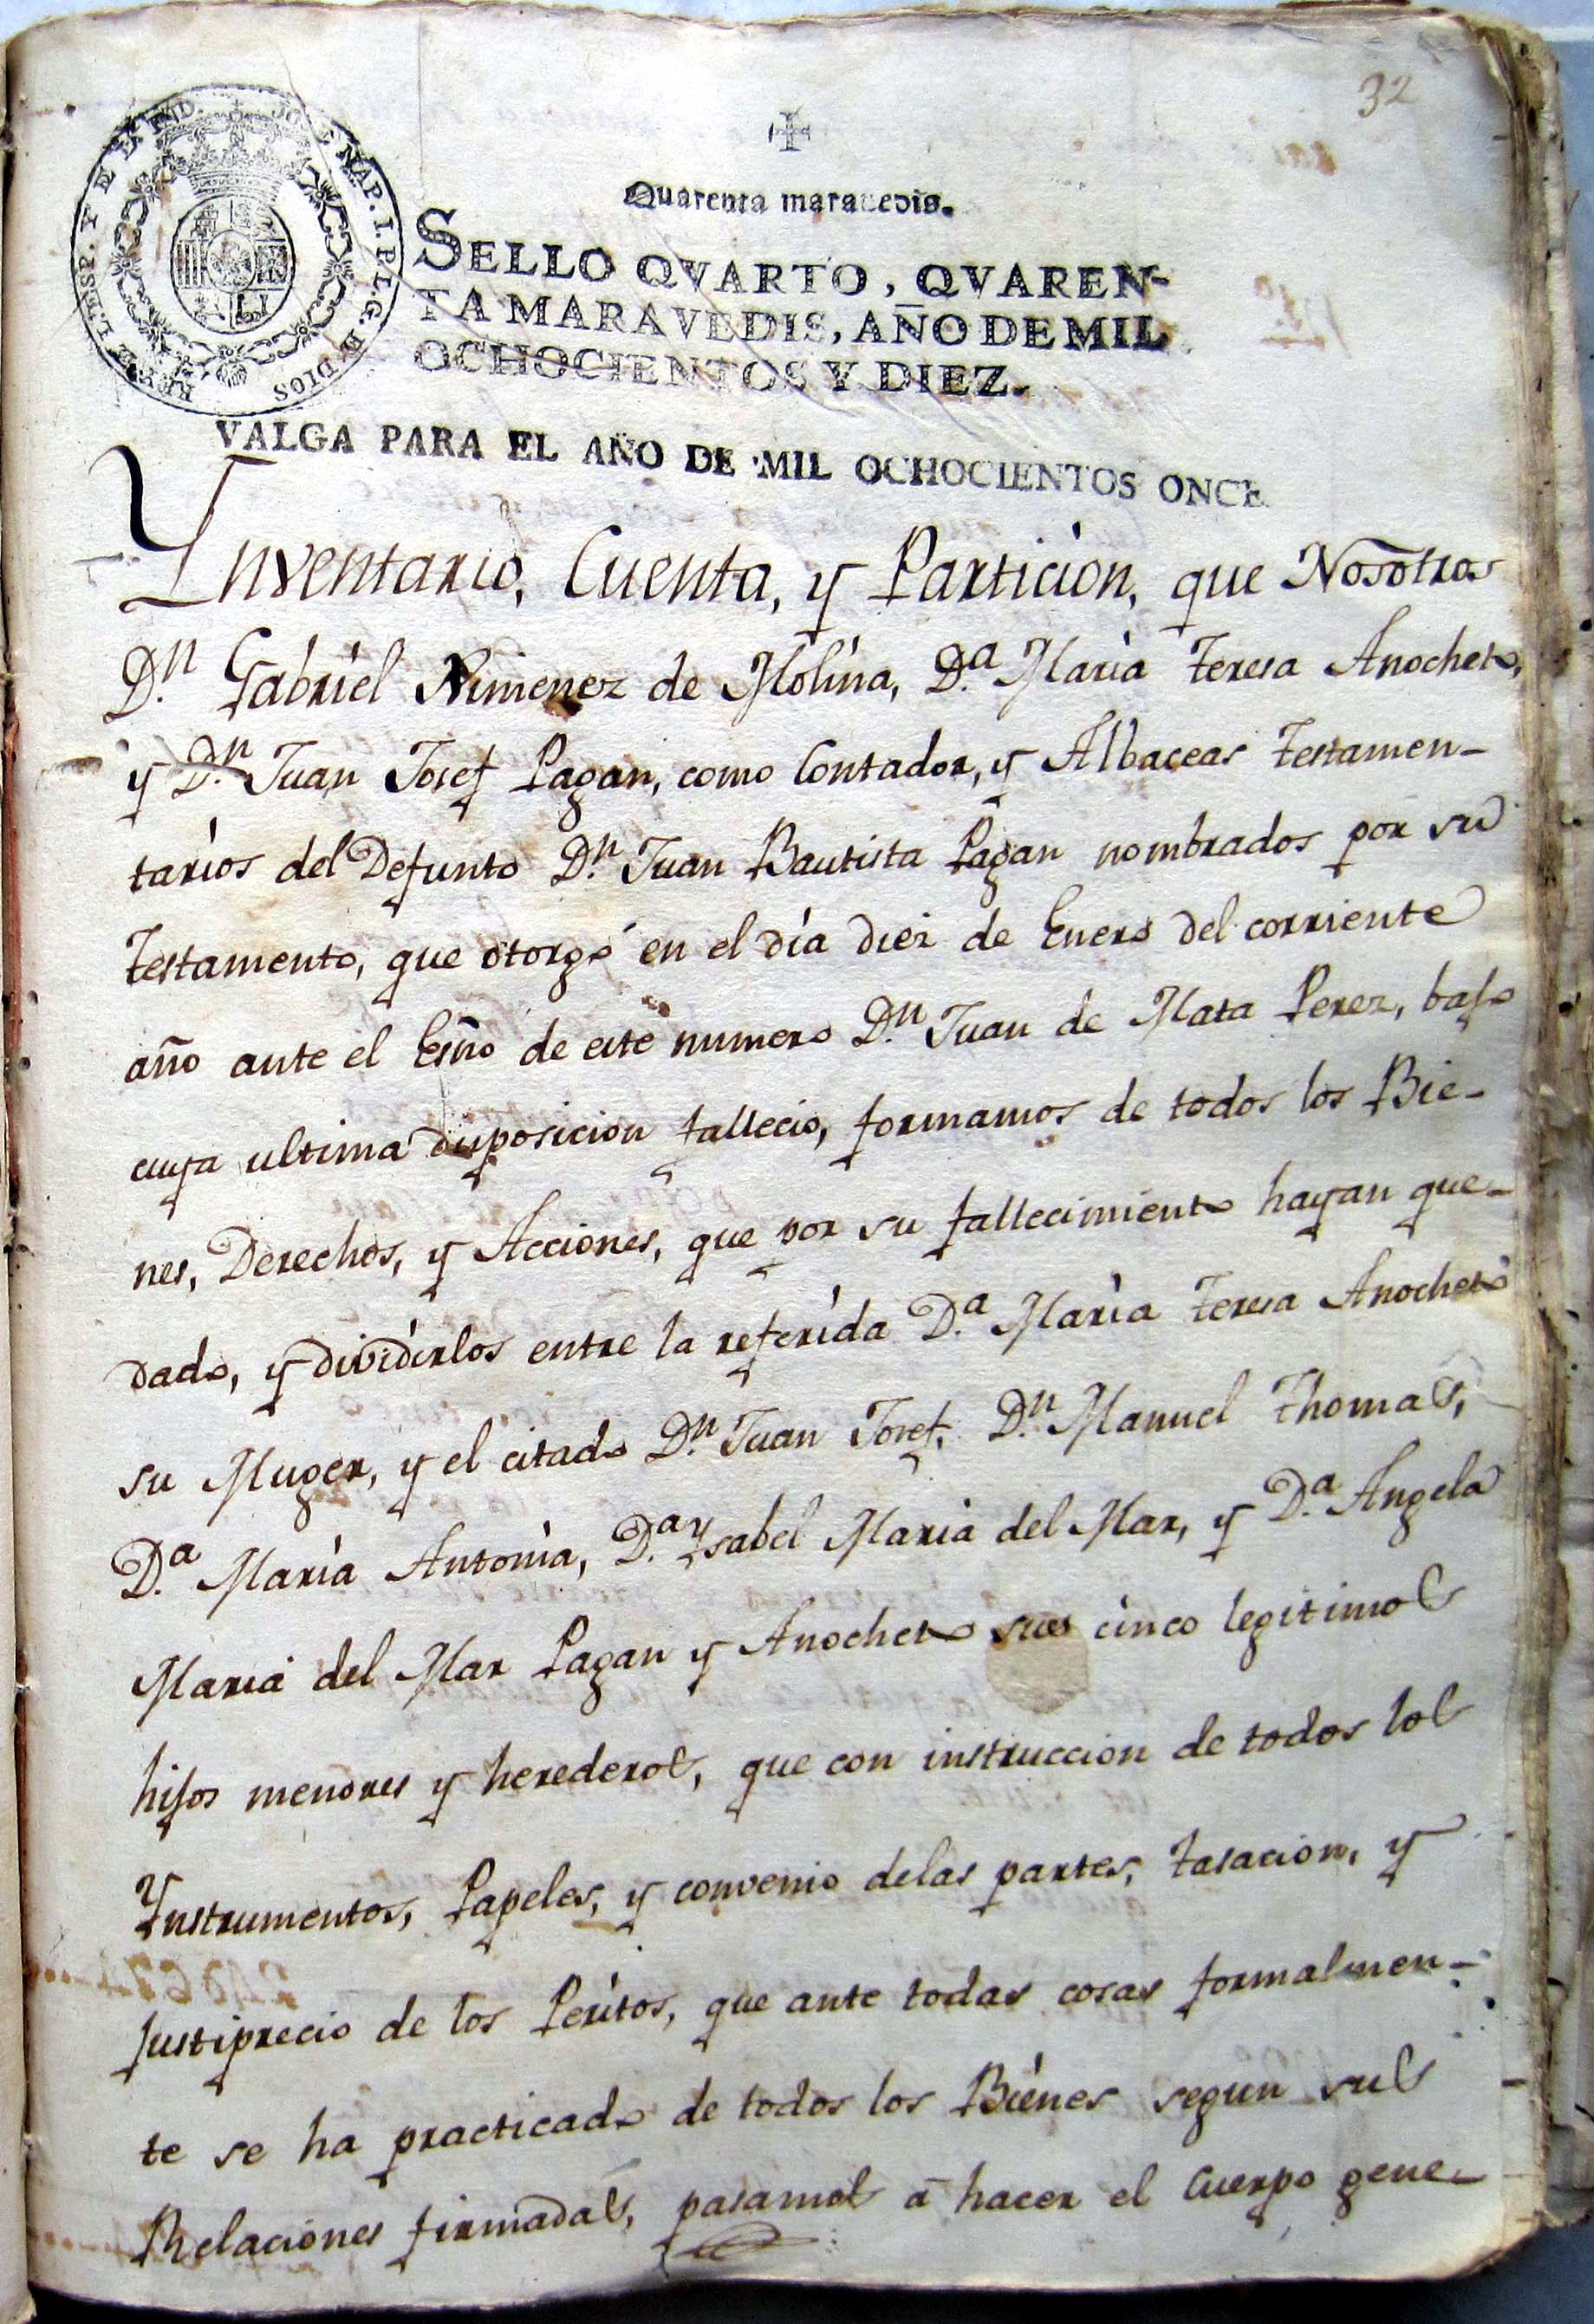 32
Quarenta maravedis.
SELLO QVARTO, QVAREN-
TA MARAVEDIS, AÑO DE MIL
OCHOCIENTOS Y DIEZ.
VALGA PARA EL AÑO DE MIL OCHOCIENTOS ONCE
Ynventario, Cuenta, y Particion, que Nosotros
D.n Gabriel Ximenez de Molina, D.a Maria Teresa Anocheto,
y D.n Juan Josef Pagan, como Contador, y Albaceas testamen-
tarios del Defunto D.n Juan Bautista Pagan nombrados por su
testamento, que otorgó en el día diez de Enero del corriente
año ante el Esño de este numero D.n Juan de Mata Perez, bajo
cuya ultima disposicion fallecio, formamos de todos los Bie-
nes, Derechos, y Acciones, que por su fallecimiento hayan que-
dado, y dividirlos entre la referida D.a Maria teresa Anocheto
su Muger, y el citado D.n Juan Josef, D.n Manuel Thomas,
D.a Maria Antonia, D.a Ysabel Maria del Mar, y D.a Angela
Maria del Mar Pagan y Anocheto sus cinco legitimos
hijos menores y herederos, que con instruccion de todos los
Ynstrumentos, Papeles, y convenio delas partes, tasacion, y
justiprecio de los Peritos, que ante todas cosas formalmen-
te se ha practicado de todos los Bienes segun sus
Relaciones firmadas, pasamos á hacer el Cuerpo gene-